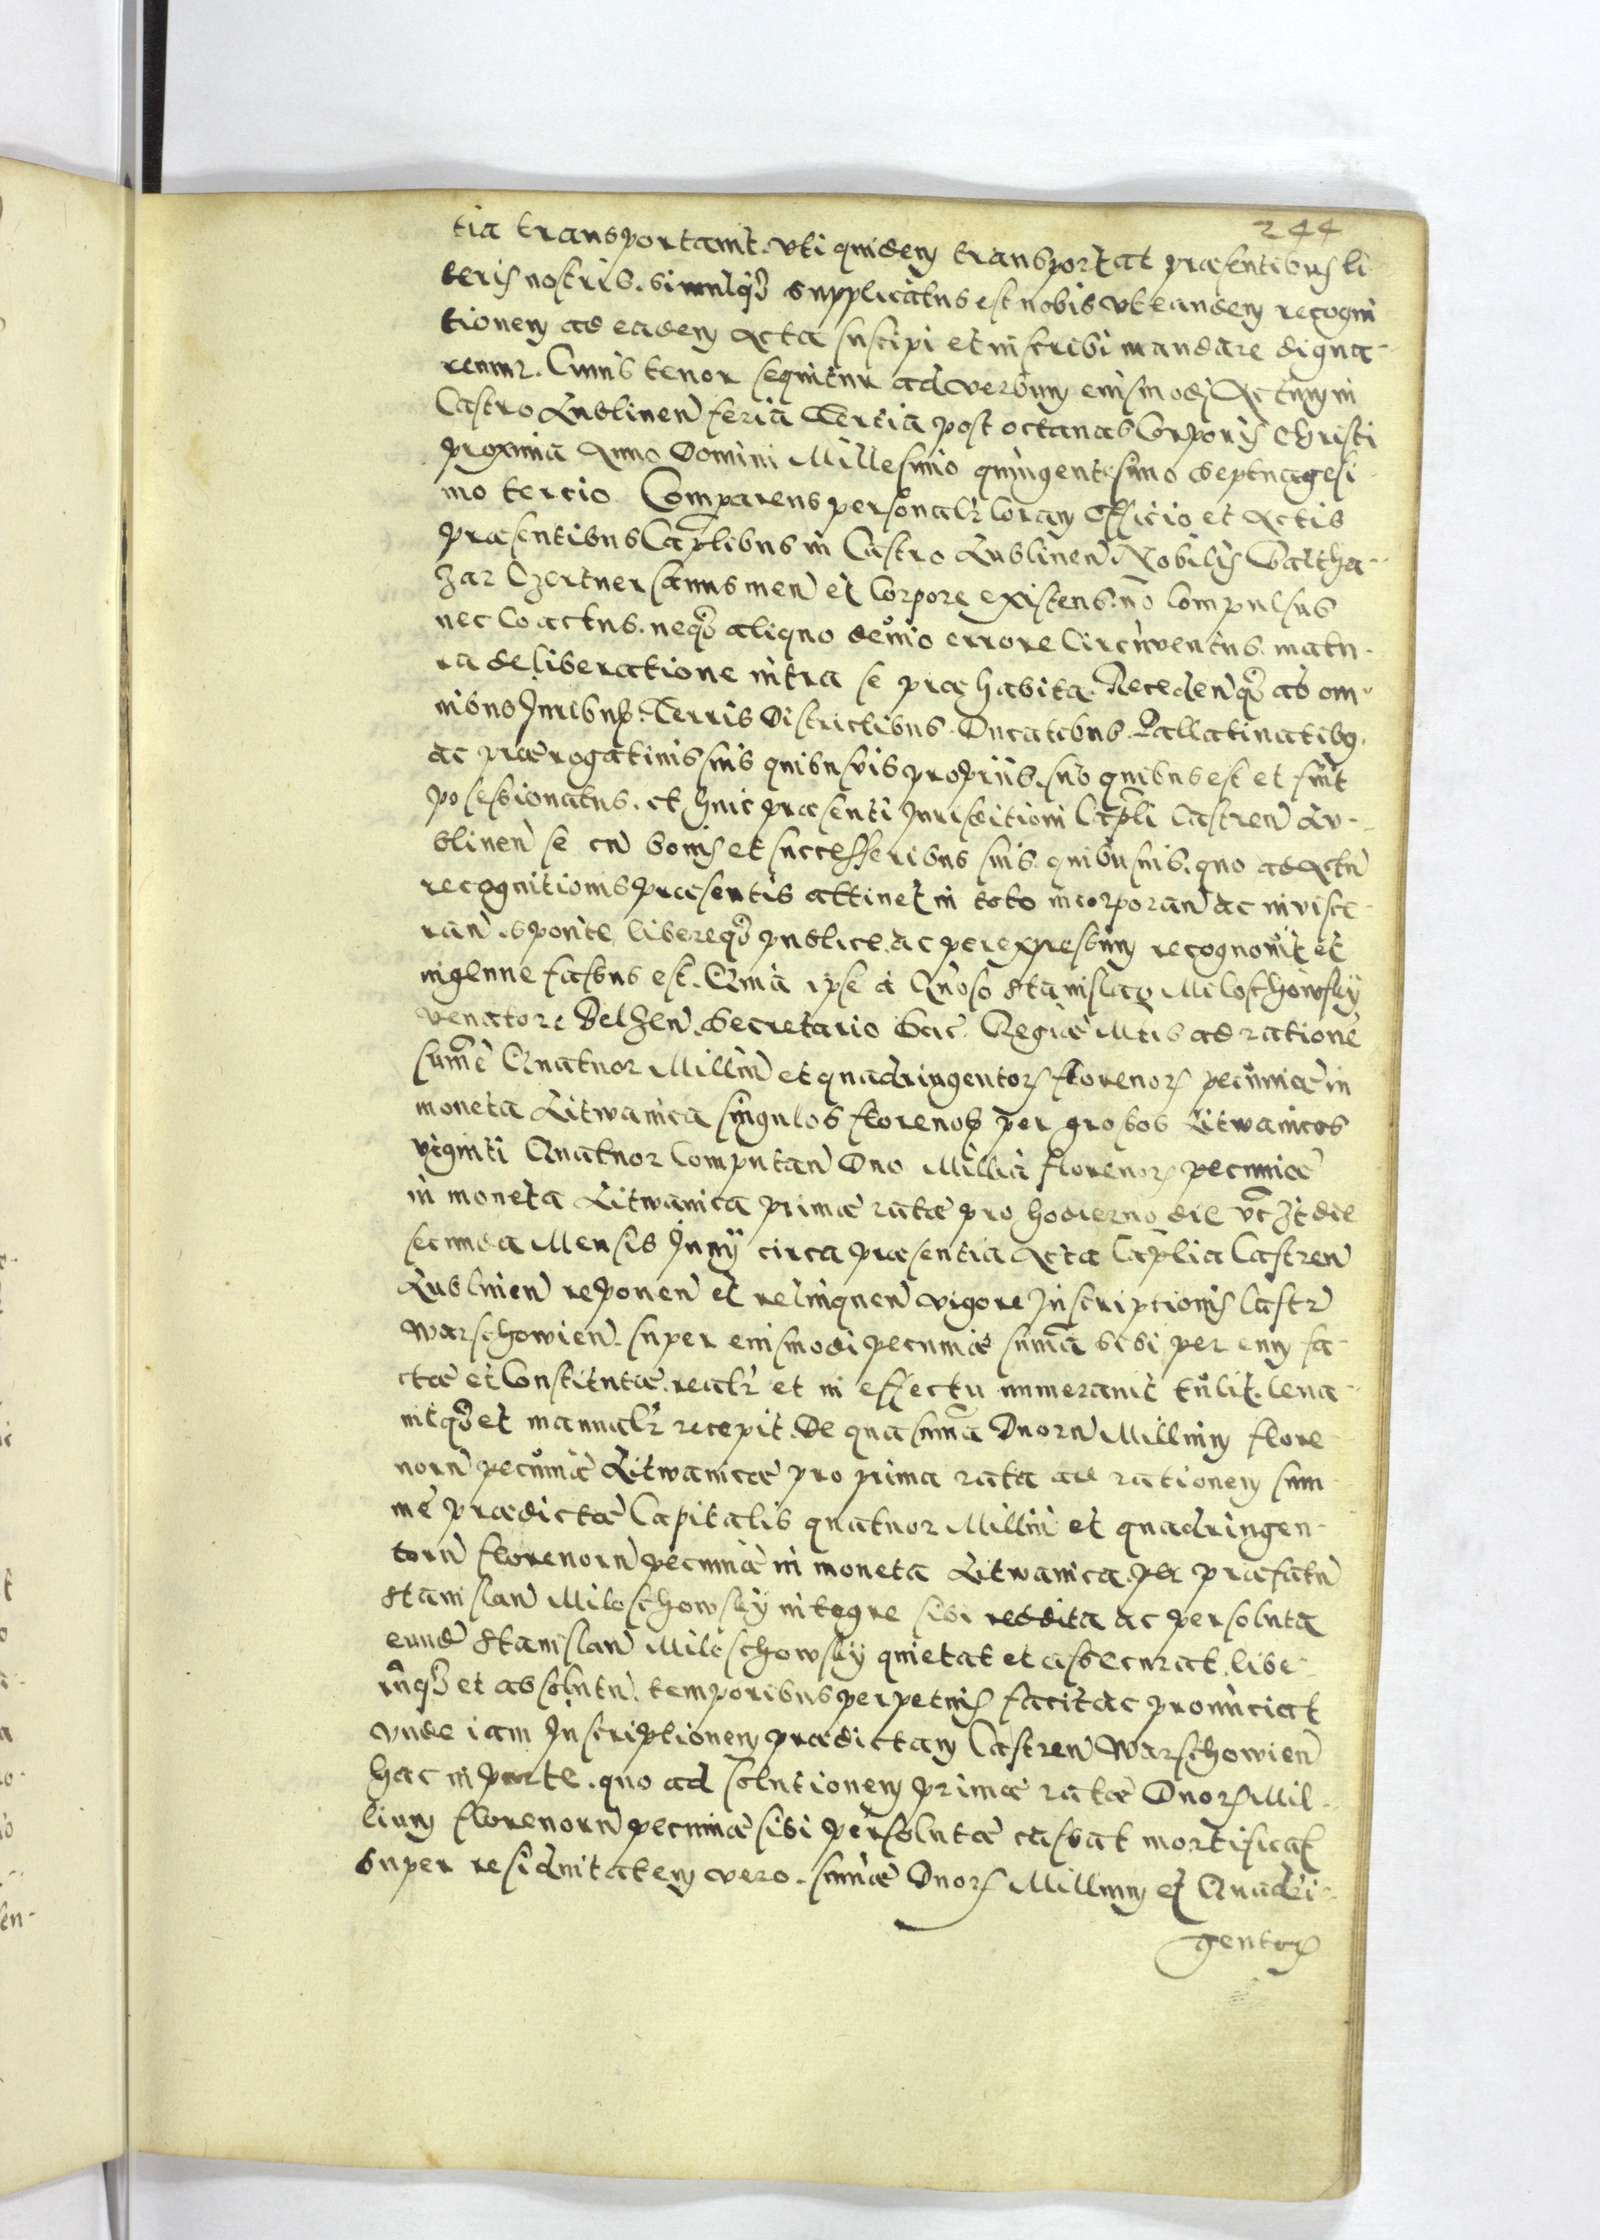 244
tia transportavit. vti quidem transportat præsentibus li
teris nostris. simulq3 supplicatus est nobis vt eandem recogni
tionem ad eadem Acta suscipi et inscribi mandare digna-
remur. Cuius tenor sequitur ad verbum eiusmodi Actum in
Castro Lublinen feria Tertia post octauas Corporis Christi
proxima Anno Domini Millesimo quingentesimo septuagesi
mo tercio. Comparens personalr Coram Officio et Actis
præsentibus Caplibus in Castro Lublinen Nobilis Baltha-
zar Czertner sanus men et Corpore existens. no compulsus
nec Coactus. neq3 aliquo deuio errore Circuventus. matu-
ra deliberatione intra se præhabita. Receden q3 ab om-
nibus Juribus. Terris Districtibus. Ducatibus. Pallatinatibus
ac prærogatiuis suis quibusvis proprijs. sub quibus est et fuit
posesionatus. et huic præsenti Jurisditioni Capli Castren Lu-
blinen se cu bonis et successoribus suis. quibusuis. quo ad Actu
recognitionis præsentis attinet in toto incorporan ac invisce-
ran. sponte libereq3 publice. ac per expressum recognouit et
ingenue fassus est. Quia ipse a Gnoso Stanislao Miloschowsky
venatore Belzen. Secretario Sac. Regiæ Mtis ad ratione
sume Quatuor Milliu et quadringentor florenor pecuniæ in
moneta Litwanica singulos florenos per grosos Litwanicos
viginti Quatuor Computan Duo Millia florenor pecuniæ
in moneta Litwanica primæ ratæ pro hodierno die vczt die
secunda Mensis Junij circa præsentia Acta Caplia Castren
Lublinen reponen et relinquen vigore Inscriptionis Castr
Warschowien. super eiusmodi pecuniæ suma sibi per eum fa-
ctæ et Constitutæ. realr et in effectu numerauit tulit. leua-
uitq3 et manualr recepit. De qua suma Duoru Millium flore
noru pecuniæ Litwanicæ pro prima rata ad rationem sum
me prædictæ Capitalis quatuor Milliu et quadringen-
toru florenoru pecuniæ in moneta Litwanica. per præfatu
Stanislau Miloschowsky integre sibi reddita ac persoluta
eunde Stanislau Miloschowsky quietat et assecurat. libe-
ruq3 et absolutu. temporibus perpetuis facit ac pronunciat
vnde iam Inscriptionem prædictam Castren Warschowien
hac in parte. quo ad solutionem primæ ratæ Duor Mil-
lium florenoru pecuniæ sibi persolutæ cassat mortificat
super residuitatem vero. sumæ Duor Millium et Quadri-
gentor